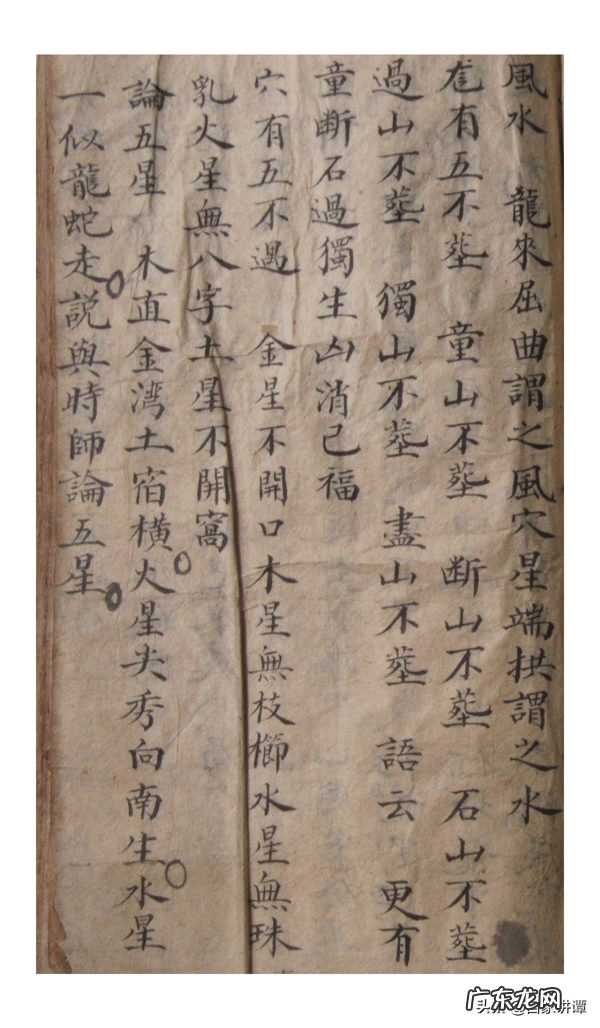 風水 龍來屈曲謂之風穴星端拱謂之水
有五不塟 童山不塟 断山不塟 石山不塟
過山不塟 獨山不塟 盡山不塟 語云 更有
童断石過獨生凶消己福
穴有五不遇 金星不開口木星無枝櫛水星無珠
乳火星無八字土星不開窩
論五星 木直金湾土宿横火星尖秀向南生水星
一似龍蛇走説與時師論五星
广东龙网